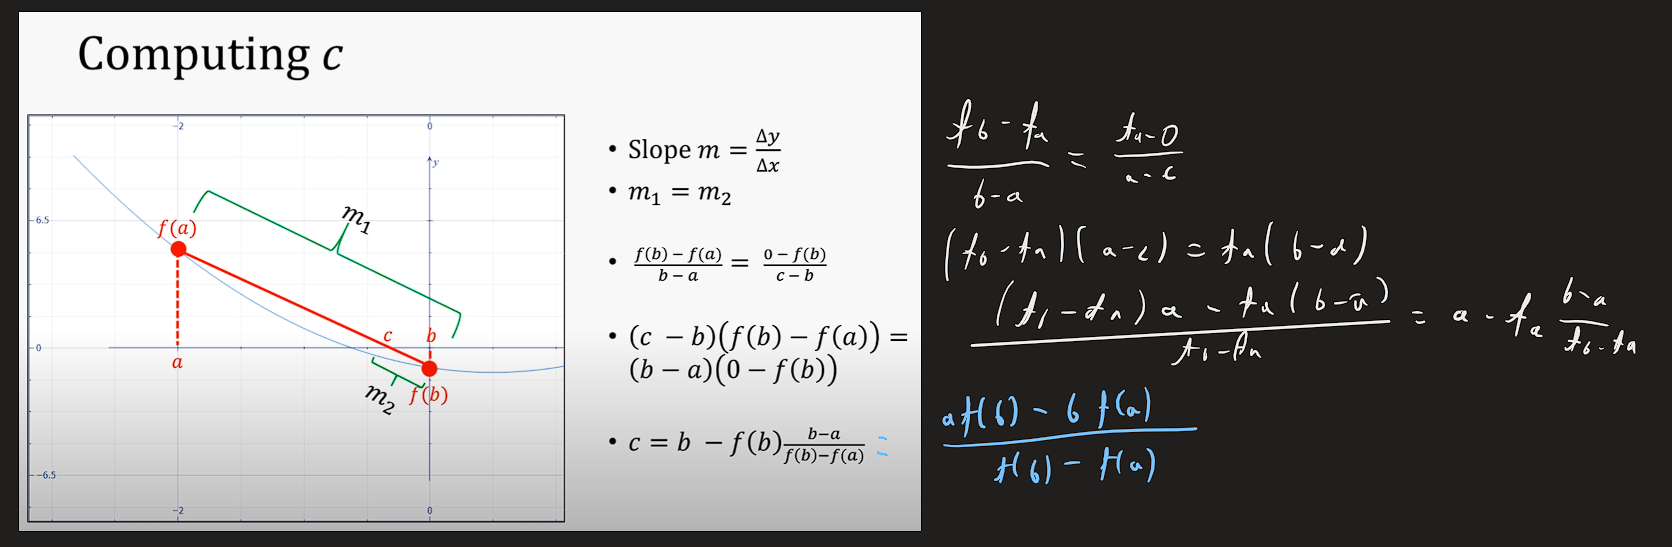 Computing c
−2
0
y
6.5
f(a)
m₁
• Slope m = Δy/Δx
• m₁ = m₂
• (f(b) − f(a))/(b − a) = (0 − f(b))/(c − b)
c
b
0
a
• (c − b)(f(b) − f(a)) =
(b − a)(0 − f(b))
m₂
f(b)
• c = b − f(b) (b−a)/(f(b)−f(a)) =
−6.5
−2
0
(f_b − f_a)/(b − a) = (f_a − 0)/(a − c)
(f_b − f_a)(a − c) = f_a(b − a)
((f_b − f_a)a − f_a(b − a))/(f_b − f_a) = a − f_a (b − a)/(f_b − f_a)
(a f(b) − b f(a))/(f(b) − f(a))